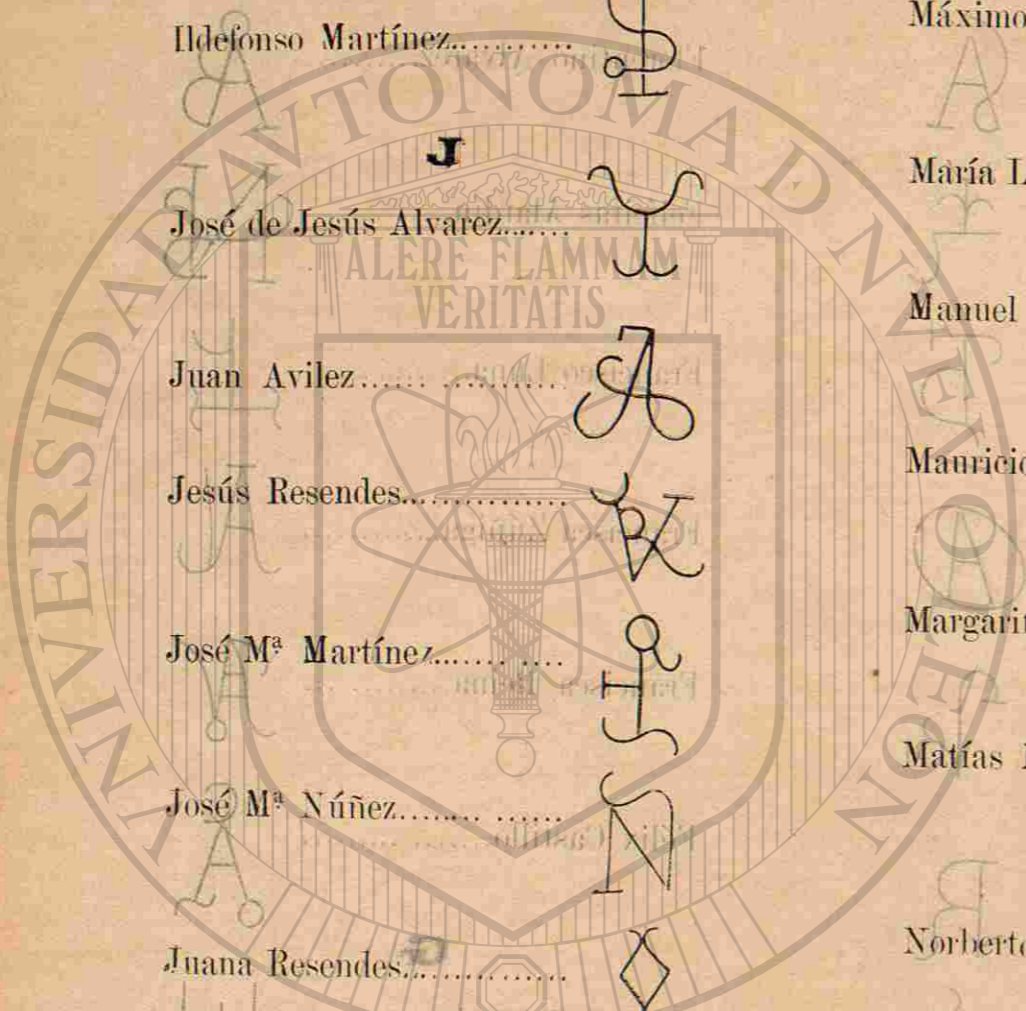 Ildefonso Martínez
J
José de Jesús Alvarez
Juan Avilez
Jesús Resendes
José Mª Martínez
José Mª Núñez
Juana Resendes
Máximo
María
Manuel
Matías
UNIVERSIDAD AVTONOMA DE NVEVO LEON
ALERE FLAMMAM
VERITATIS